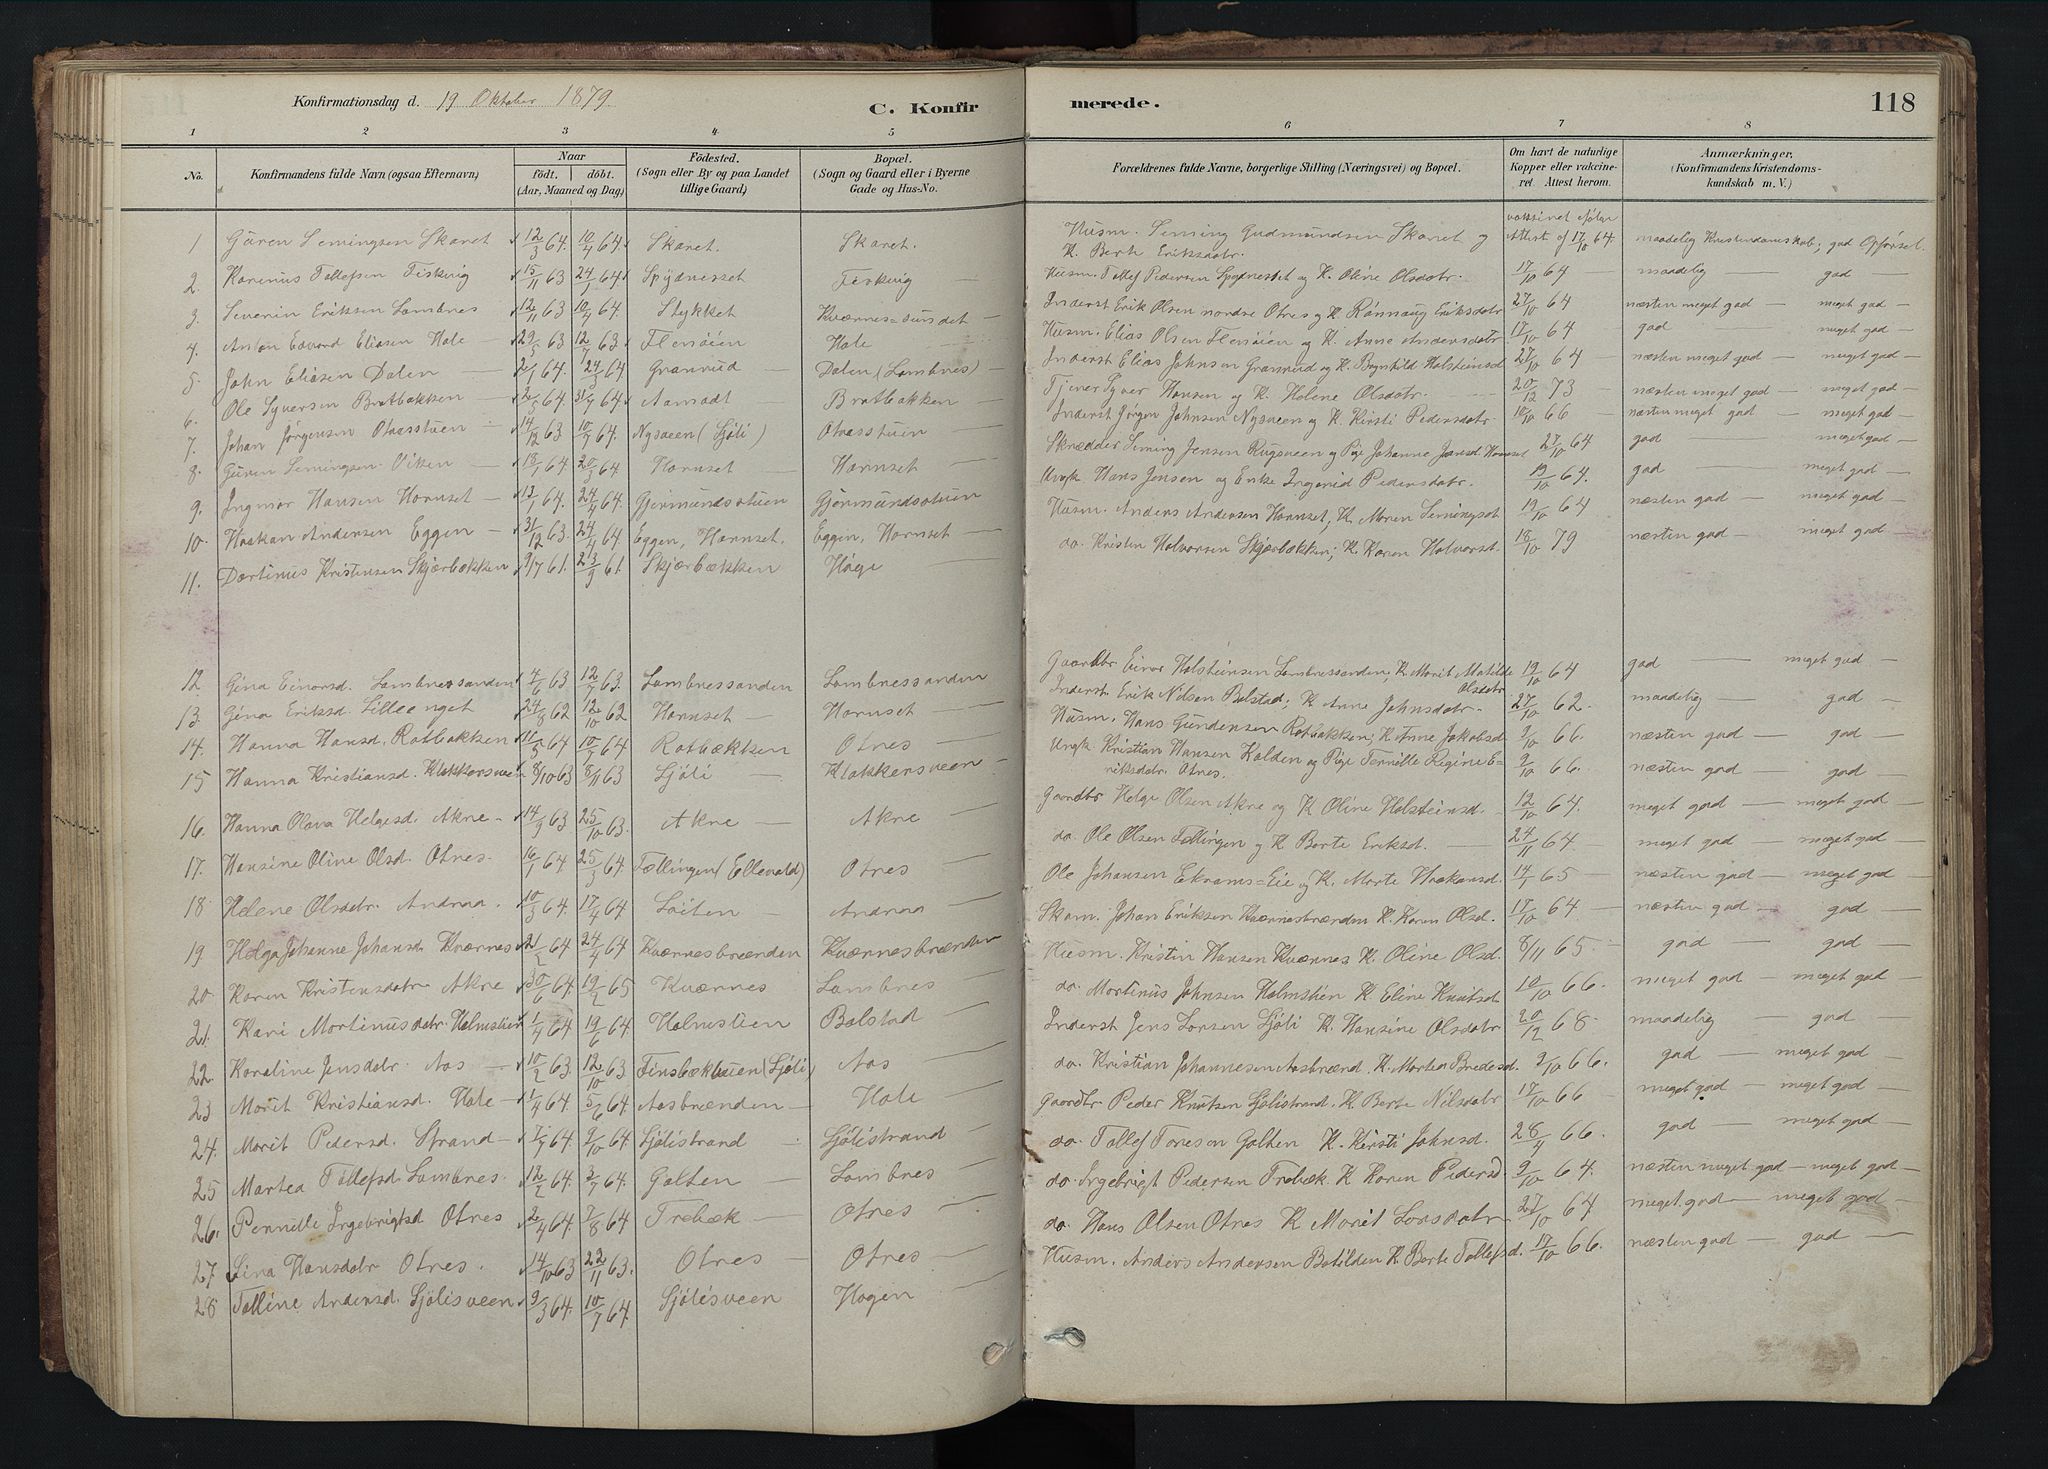 Konfirmationsdag d. 19 Oktober 1879.
C. Konfirmerede.
118
1 2 3 4 5 6 7 8
No.
Konfirmandens fulde Navn (ogsaa Efternavn)
Naar
födt. döbt.
(Aar, Maaned og Dag)
Födested.
(Sogn eller By og paa Landet tillige Gaard)
Bopæl.
(Sogn og Gaard eller i Byerne Gade og Hus-No.
Forældrenes fulde Navne, borgerlige Stilling (Næringsvei) og Bopæl.
Om havt de naturlige Kopper eller vakcineret. Attest herom.
Anmærkninger.
(Konfirmandens Kristendomskundskab m. V.)
1 Guren Semingsen Skaret 12/3 64. 10/4 64. Skaret. Skaret. Husm. Seming Gudmundsen Skaret og K. Berte Eriksdatr. Attest af 17/10 64. maadelig Kristendomskab; god Opförsel.
2. Karenus Tollefsen Fiskvig 15/11 63 24/1 64 Spydnesset Fiskvig — Husm. Tollef Pedersen Spydnesset og K. Oline Olsdatr. 17/10 64 maadelig — god —
3. Severin Eriksen Lombnes 12/11 63 10/4 64. Stykket Kværnes=sundet — Inderst Erik Olsen nordre Otnes og K. Rønnaug Eriksdatr 27/10 64 næsten meget god — meget god —
4. Anton Edvard Eliasen Hole 29/5 63 12/7 63 Flenöien Hole — Husm. Elias Olsen Flenöien og K. Anne Andersdatr. 17/10 64 god — meget god —
5. John Eliasen Dalen — 2/1 64. 24/3 64 Granrud — Dalen (Lombnes) — Inderst Elias Johnsen Granrud og K. Brynhild Holsteinsd 27/10 64 — næsten meget god — meget god —
6. Ole Syversen Bratbakken — 2/5 64. 31/7 64 Aamodt — Bratbakken — Tjener Syver Hansen og K. Helene Olsdatr. 20/12 73 — næsten meget god — meget god —
7. Johan Jørgensen Otnesstuen 14/12 63 10/7 64. Nysveen (Sjöli) Otnesstuen — Inderst Jørgen Johnsen Nysveen og K. Kirsti Pedersdatr 10/10 66 næsten meget god — meget god —
8. Guren Semingsen Viken — 18/1 64 20/3 64 Hornset — Hornset — Skrædder Seming Jensen Rugsveen og Pige Johanne Jonsd Hornset 27/10 64 god — meget god —
9. Ingmar Hansen Hornset — 13/1 64. 24/4 64. Gjermundsstuen Gjermundsstuen Ungk Hans Jensen og Enke Ingerid Pedersdatr. 19/10 64. god — meget god —
10. Haakan Andersen Eggen — 31/12 63. 24/4 64 Eggen, Hornset. Eggen, Hornset — Husm. Anders Andersen Hornset, K. Maren Semingsdt 19/10 64 næsten god — meget god —
11. Dortinus Kristensen Skjærbækken 9/7 61. 23/9 61. Skjærbækken Höge — do. Kristen Halvorsen Skjærbækken; K. Karen Halvorsd. 18/10 79 næsten god — meget god —
12. Gina Einarsd. Lombnessanden 4/6 63 12/7 63. Lombnessanden Lombnessanden Gaardbr Einar Holsteinsen Lombnessanden, K. Marit Matilde Olsdatr 19/10 64 god — meget god —
13. Gina Eriksd. Lilleenget 24/8 62 12/10 62 Hornset — Hornset — Inderst Erik Nilsen Bolstad; K Anne Johnsdatr. 27/10 62. maadelig — god —
14. Hanna Hansd. Rotbækken 11/5 64 10/7 64. Rotbækken Otnes — Husm. Hans Gundensen Rotbækken; K. Anne Jakobsd 9/10 66. næsten god — god —
15 Hanna Kristiansd. Klokkersveen 8/10 63 8/11 63 Sjöli — Klokkersveen — Ungk Kristian Hansen Kolden og Pige Pernille Regine Eriksdatr. Otnes. 9/10 66. næsten god — god —
16. Hanna Olava Helgesd. Akre 14/9 63 25/10 63. Akre — Akre — Gaardbr Helge Olsen Akre og K Oline Holsteinsd. 12/10 64. meget god — meget god —
17. Hansine Oline Olsd. Otnes. 16/1 64. 25/3 64. Tællingen (Ellevold) Otnes — do. Ole Olsen Tællingen og K Berte Eriksd. — 24/11 64. — meget god — meget god —
18 Helene Olsdatr. Andraa. 10/3 64. 17/4 64. Loiten — Andraa — Ole Johansen Ekrams=Eie og K. Marte Haakansd. 14/1 65 — næsten god — meget god —
19 Helga Johanne Johansd. Kværnes 21/2 64 24/4 64 Kværnesbrænden Kværnesbrænden Skom. Johan Eriksen Kværnesbrænden K. Karen Olsd. 17/10 64 — næsten god — god —
20 Karen Kristensdatr Akre 30/6 64. 19/2 65 Kværnes Lombnes — Husm. Kristen Hansen Kværnes K. Oline Olsd. 8/11 65. — god — god —
21. Kari Mortinusdatr. Holmstien 1/4 64 19/6 64. Holmstien Bolstad — do. Mortinus Johnsen Holmstien K. Eline Knutsd. 10/10 66. meget god — meget god —
22. Karoline Jensdatr. Aas — 10/2 63. 12/10 63 Finsbækkveen (Sjöli) Aas — Inderst Jens Larsen Sjöli K. Hansine Olsdatr. 20/12 68 — maadelig — god —
23 Marit Kristiansd. Hole — 1/4 64. 5/6 64 Aasbrænden — Hole — do. Kristian Johannesen Aasbrænd. K. Martea Bredesd. 9/10 66. god — meget god —
24. Marit Pedersd. Strand — 1/7 64. 9/10 64. Sjölistrand Sjölistrand — Gaardbr Peder Knutsen Sjölistrand. K. Berte Nilsdatr 17/10 66 meget god — meget god —
25 Martea Tollefsd. Lombnes. 12/2 64. 3/7 64. Galten — Lombnes — do. Tollef Toresen Galten K. Kirsti Johnsd. 28/4 66. god — meget god —
26. Pernille Ingebrigtsd Otnes 2/4 64. 7/8 64 Trebæk — Otnes — do. Ingebrigt Pedersen Trebæk. K Karen Pedersd. 9/10 64. næsten meget god — meget god —
27 Sina Hansdatr Otnes. 14/10 63 22/11 63. Otnes — Otnes — do. Hans Olsen Otnes K Marit Larsdatr 27/10 64 meget god — meget god —
28 Talline Andersd. Sjölisveen 9/3 64. 10/7 64. Sjölisveen Hagen — Husm. Anders Andersen Botilden K Berte Tollefsd. 17/10 66. næsten god — god —